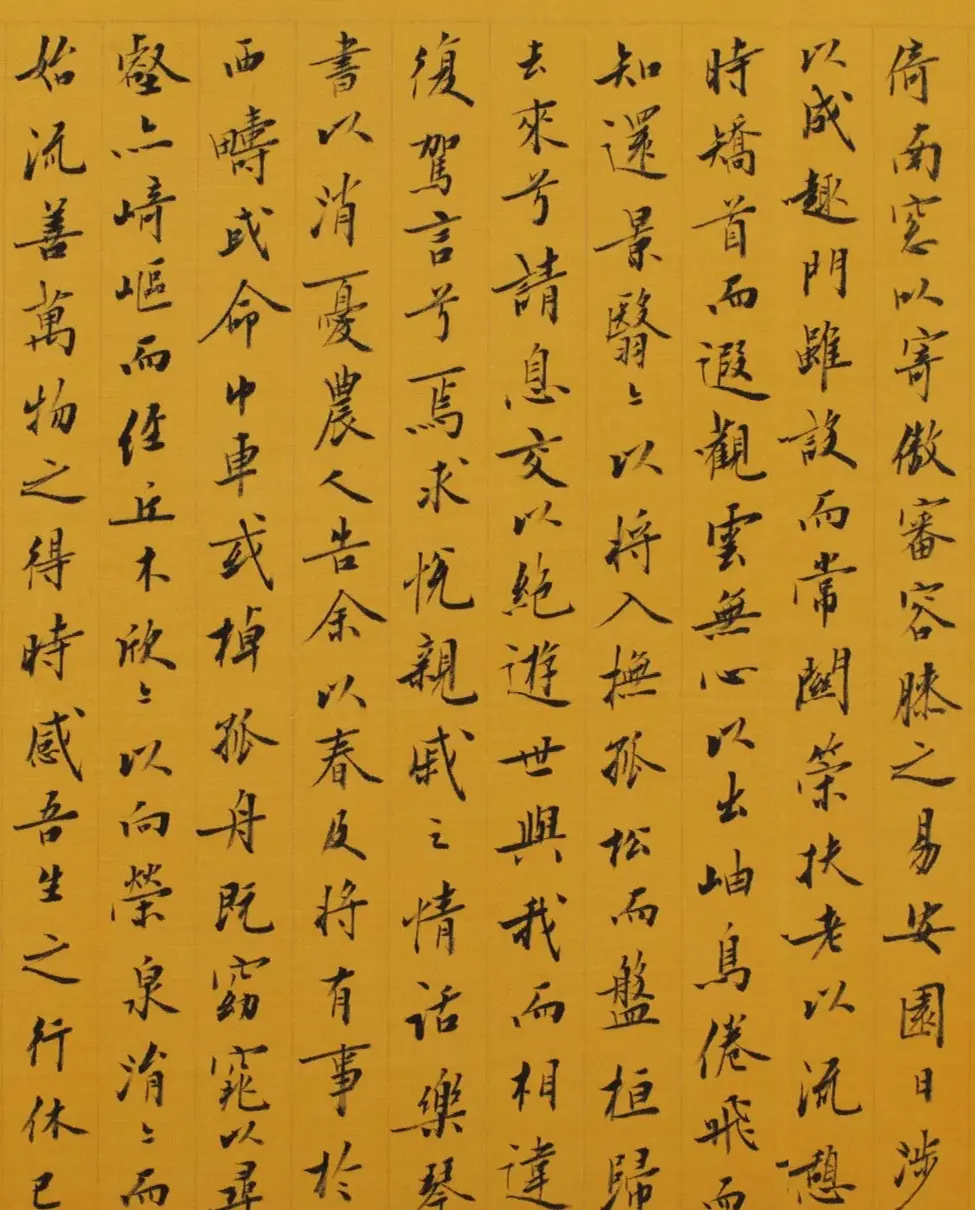 倚南窓以寄傲審容膝之易安園日涉
以成趣門雖設而常關策扶老以流憩
時矯首而遐觀雲無心以出岫鳥倦飛而
知還景翳〻以將入撫孤松而盤桓歸
去來兮請息交以絕遊世與我而相違
復駕言兮焉求悅親戚之情話樂琴
書以消憂農人告余以春及將有事於
西疇或命巾車或棹孤舟既窈窕以尋
壑亦崎嶇而經丘木欣〻以向榮泉涓〻而
始流善萬物之得時感吾生之行休已